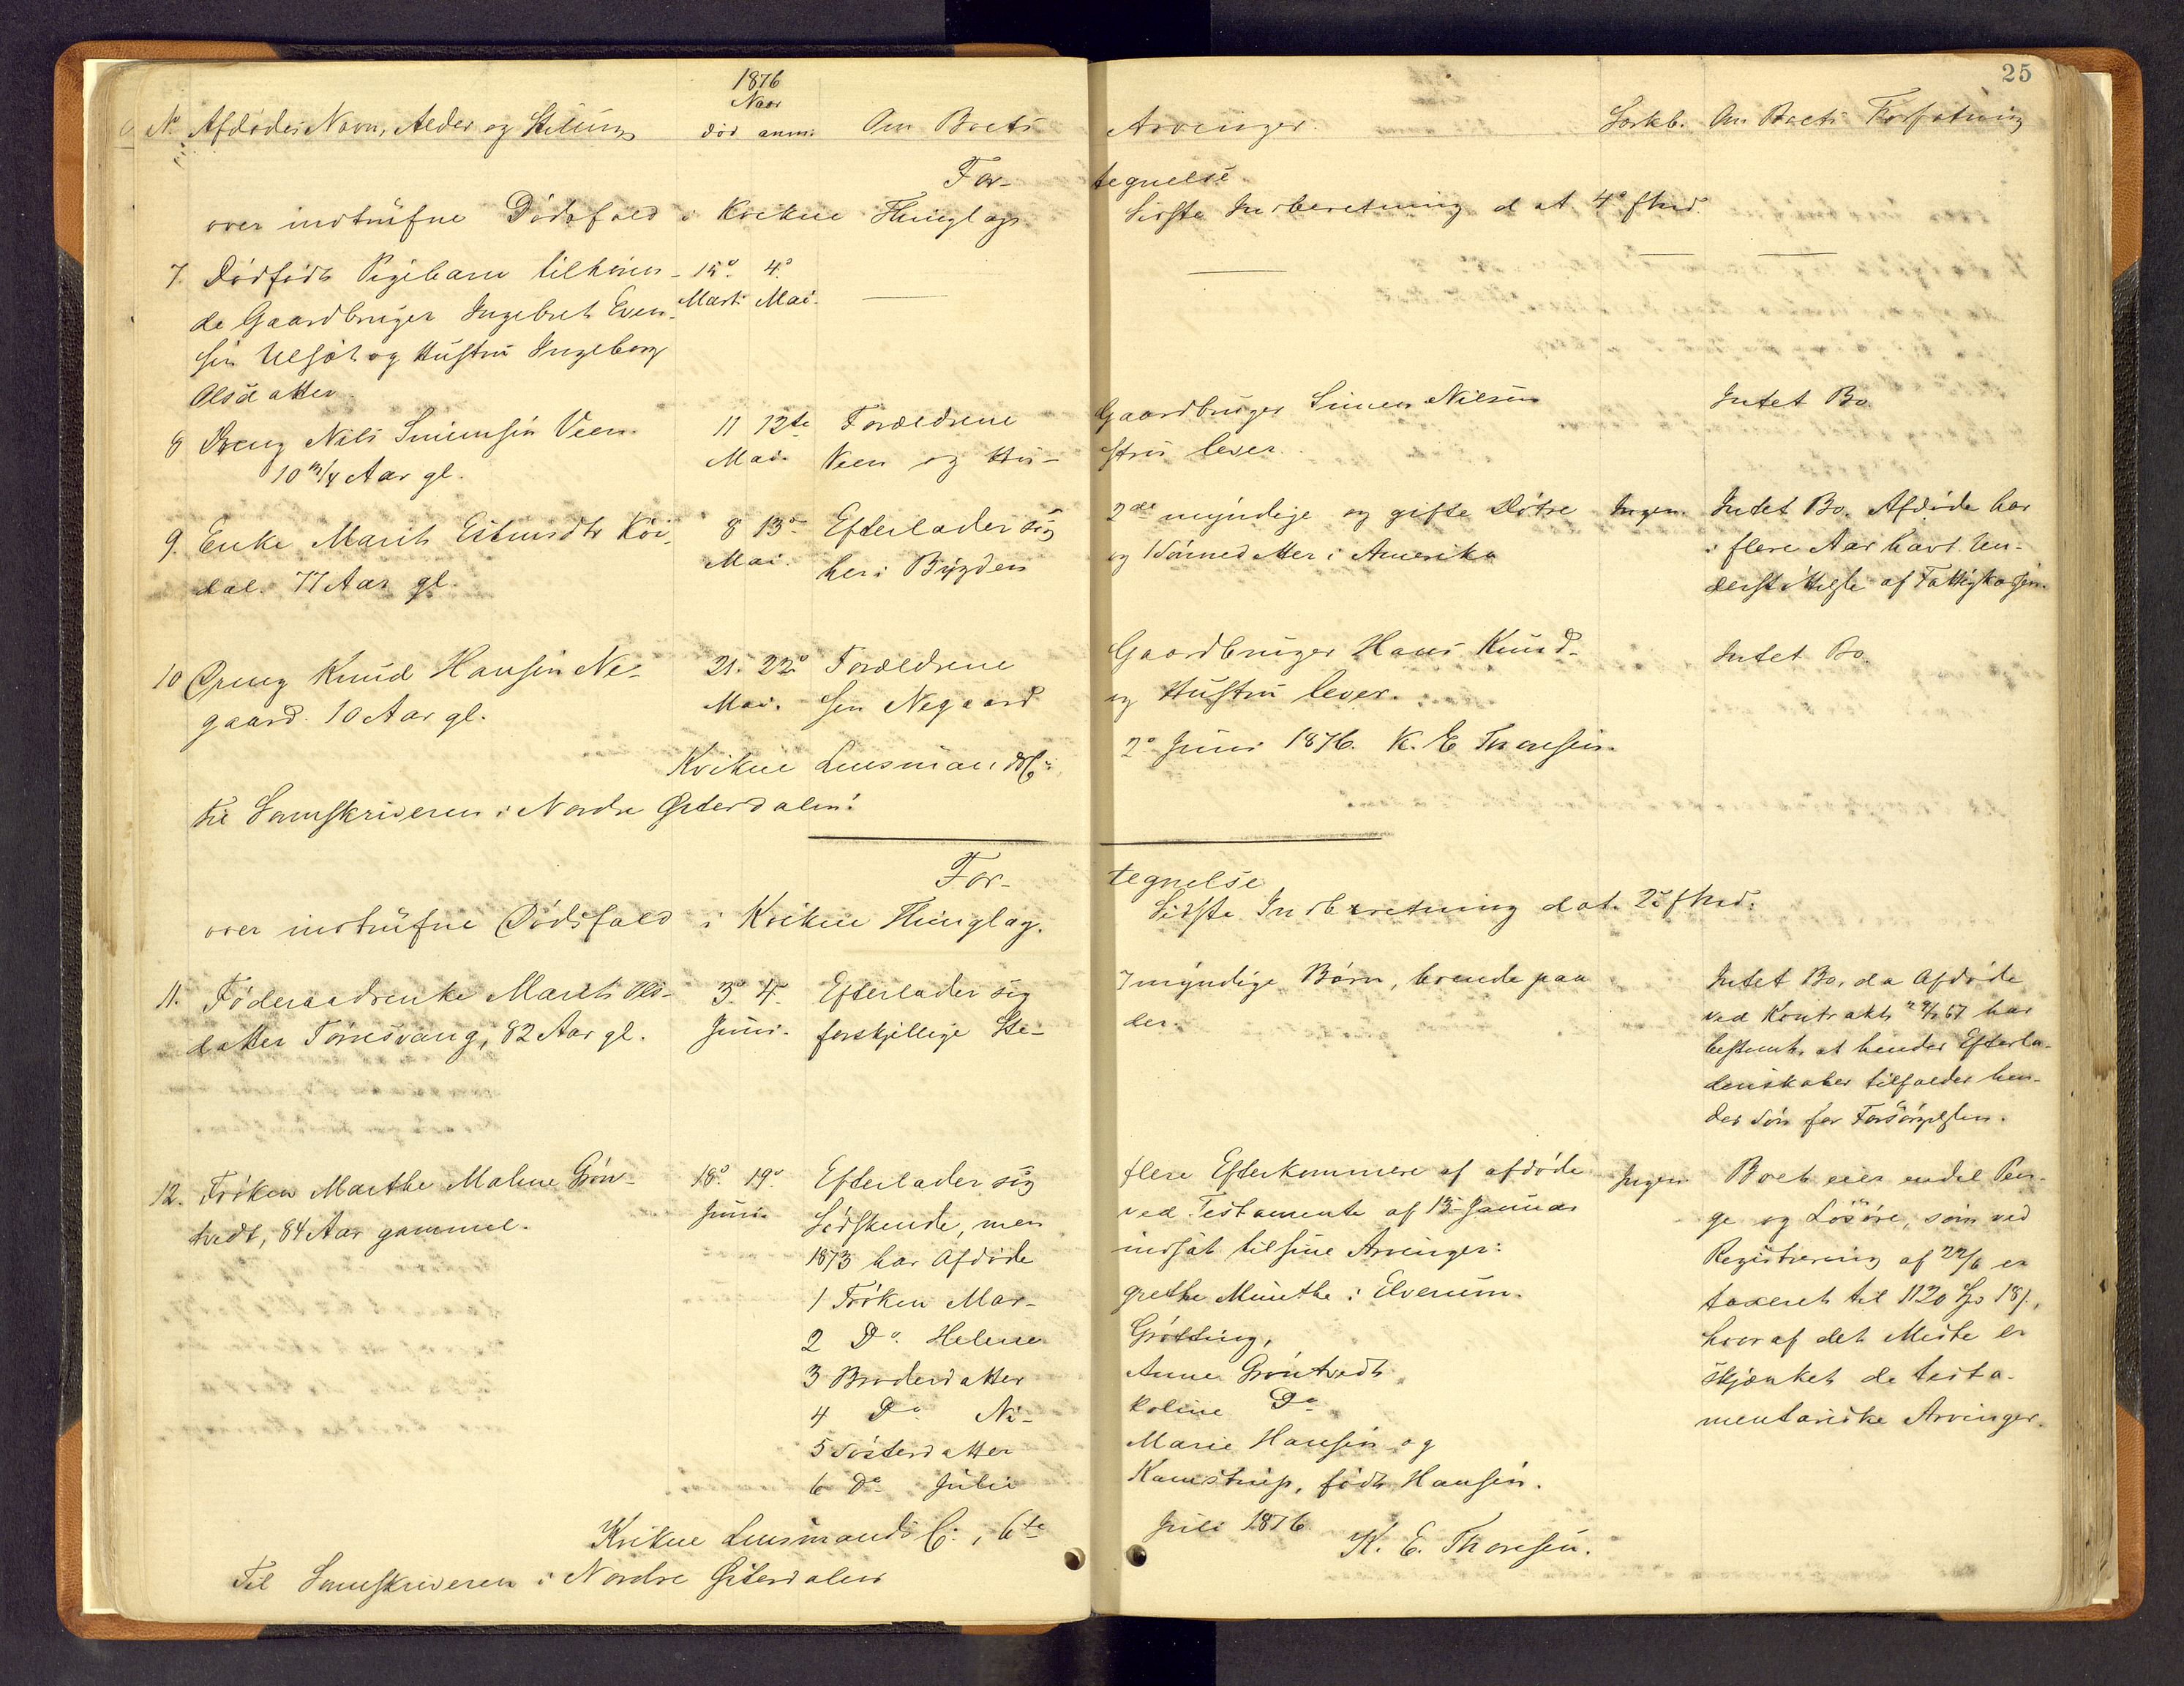 25
1876
Naar
No Afdødes Navn, Alder og Stilling død anm. Om Boets Arvinger. Sorkb. Om Boets Forfatning
For-tegnelse
over indtrufne Dødsfald i Kvikne Thinglag. Sidste Indberetning dat 4de f. Md.
7. Dødfødt Pigebarn tilhøren- 15de 4de
de Gaardbruger Ingebret Even- Marts Mai.
sen Ulsæt og Hustru Ingeborg
Olsdatter.
8 Dreng Nils Simensen Veen 11 12te Forældrene Gaardbruger Simen Nilsen Intet Bo.
10 3/4 Aar gl. Mai. Veen og Hu- stru lever.
9. Enke Marit Estensdtr Köi- 8 13de Efterlader sig 2de myndige og gifte Døtre Ingen. Intet Bo. Afdøde har
dal. 77 Aar gl. Mai. her i Bygden og 1 Sønnedatter i Amerika i flere Aar havt Un-
derstøttelse af Fattigkassen.
10 Dreng Knud Hansen Ne- 21. 22de Forældrene Gaardbruger Hans Knud- Intet Bo.
gaard. 10 Aar gl. Mai. sen Negaard og Hustru lever.
Kvikne Lensmandsb: 2de Juni 1876. K. E. Thoresen.
Til Sorenskriveren i Nordre Østerdalen.
For-tegnelse
over indtrufne Dødsfald i Kvikne Thinglag. Sidste Indberetning dat. 2de f. Md.
11. Føderaadsenke Marit Ols- 3de 4de Efterlader sig 7 myndige Børn, boende paa Intet Bo, da Afdøde
datter Tørresvang, 82 Aar gl. Juni. forskjellige Ste- der. ved Kontrakt 67 har
bestemt, at hendes Efterla-
denskaber tilfalder hen-
des Søn for Forsørgelsen.
12. Frøken Marthe Malene Grøn- 18de 19de Efterlader sig flere Efterkommere af afdøde Ingen Boet eier endel Pen-
tvedt, 84 Aar gammel. Juni. Sødskende, men ved Testamente af 15 Januar ge og Løsøre, som ved
1873 har Afdøde indsat til sine Arvinger: Registrering af 22/6 er
1 Frøken Mar- grethe Munthe i Elverum. taxeret til 1120 Spd 18 s,
2 Do. Helene Grøtting, hvoraf det Meste er
3 Broderdatter Anne Grøntvedt skjænket de testa-
4 Do. Ni- koline Do mentariske Arvinger.
5 Søsterdatter Marie Hansen og
6 Do Julie Kamstrup, født Hansen.
Kvikne Lensmandsb:, 6te Juli 1876.
K. E. Thoresen.
Til Sorenskriveren i Nordre Østerdalen